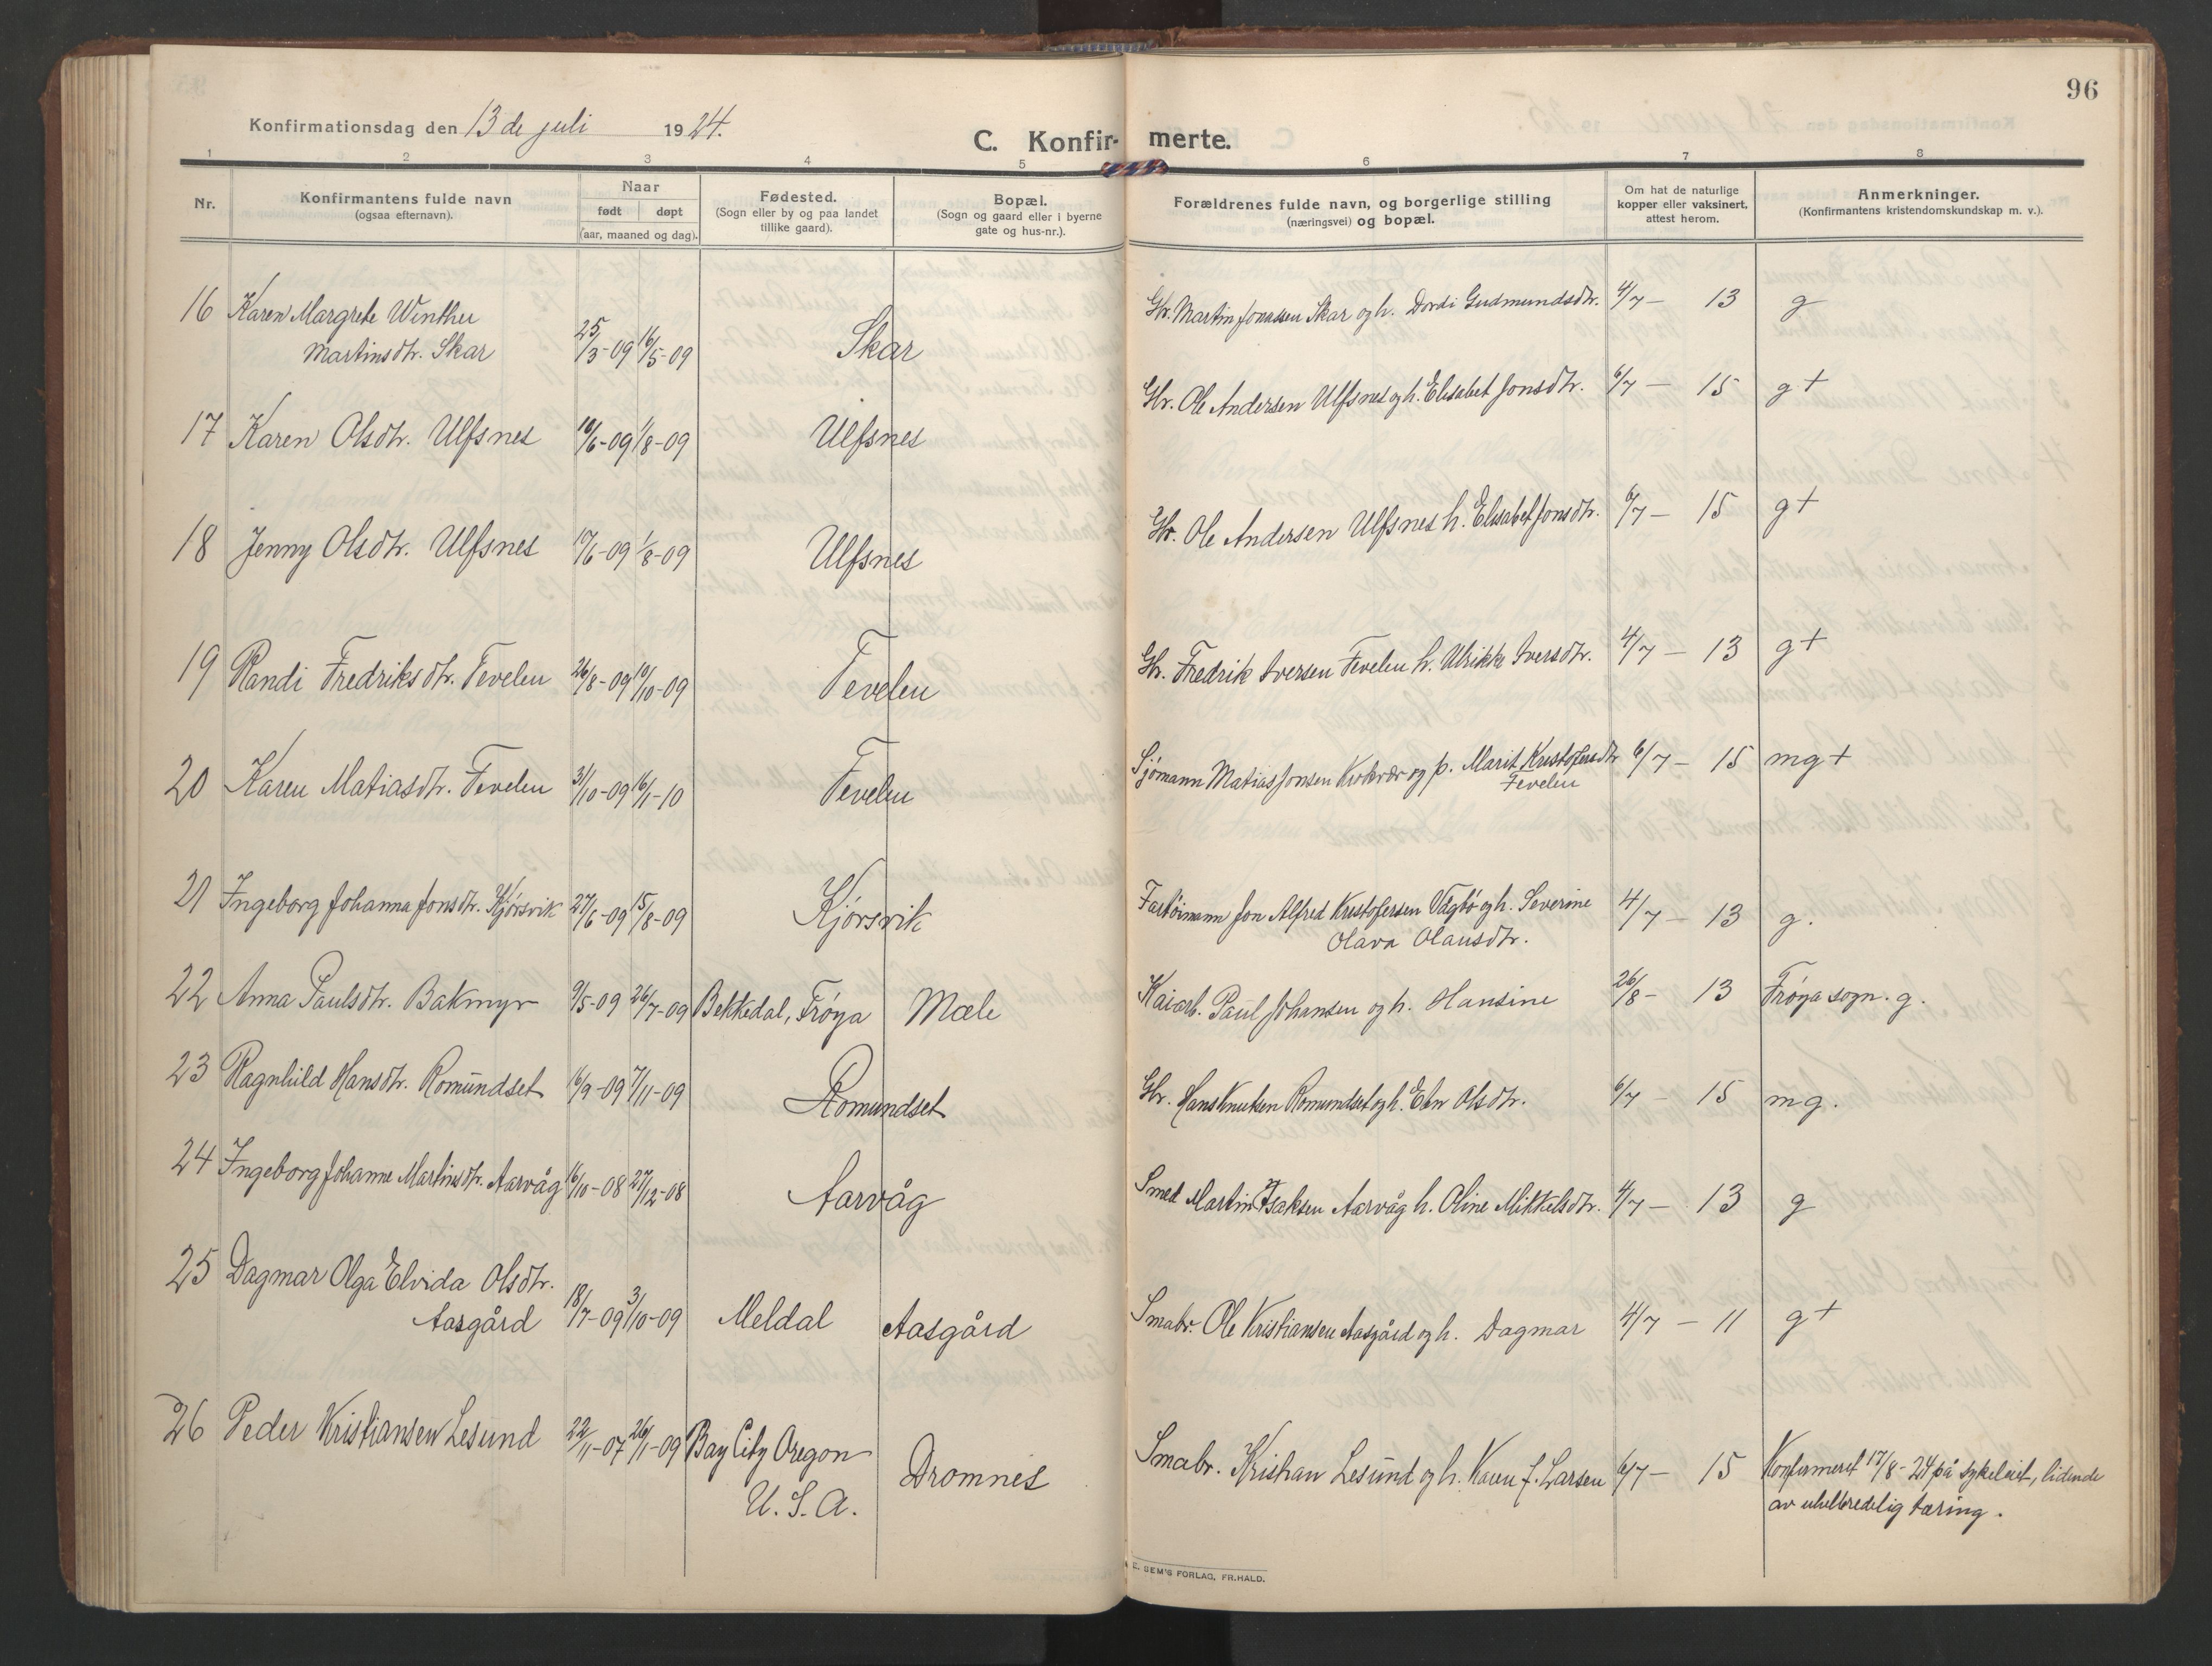 96
Konfirmationsdag den 13 de juli 1924.
C. Konfirmerte.
1 2 3 4 5 6 7 8
Nr.
Konfirmantens fulde navn
(ogsaa efternavn).
Naar
født døpt
(aar, maaned og dag).
Fødested.
(Sogn eller by og paa landet
tillike gaard).
Bopæl.
(Sogn og gaard eller i byerne
gate og hus-nr.).
Forældrenes fulde navn, og borgerlige stilling
(næringsvei) og bopæl.
Om hat de naturlige
kopper eller vaksinert,
attest herom.
Anmerkninger.
(Konfirmantens kristendomskundskap m. v.).
16 Karen Margrete Winther
Martinsdtr. Skar 25/3-09 16/5-09 Skar
Gbr. Martin Jonassen Skar og h. Dordi Gudmundsdtr. 4/7 - 13 g
17 Karen Olsdtr. Ulfsnes 10/6-09 1/8-09 Ulfsnes
Gbr. Ole Andersen Ulfsnes og h. Elisabet Jonsdtr. 6/7 - 15 g+
18 Jenny Olsdtr. Ulfsnes 10/6-09 1/8-09 Ulfsnes
Gbr. Ole Andersen Ulfsnes h. Elisabet Jonsdtr. 6/7 - 15 g+
19 Randi Fredriksdtr. Tevelen 26/8-09 10/10-09 Tevelen
Gbr. Fredrik Iversen Tevelen h. Ulrikke Iversdtr. 4/7 - 13 g+
20 Karen Matiasdtr. Tevelen 31/10-09 16/1-10 Tevelen
Sjømann Matias Jonsen og p. Marit Kristofersdtr 6/7 - 15 mg+
Tevelen
21 Ingeborg Johanna Jonsdtr. Kjørsvik 27/6-09 15/8-09 Kjørsvik
Jon Alfred Kristofersen Vågbø og h. Severine 4/7 - 13 g.
Olava Olausdtr.
22 Anna Paulsdtr. Bakmyr 9/5-09 26/7-09 Bekkedal, Frøya Mæle
Kaiarb. Paul Johansen og h. Hansine 26/8 - 13 Frøya sogn. g.
23 Ragnhild Hansdtr. Romundset 16/9-09 7/11-09 Romundset
Gbr. Hans Knutsen Romundset og h. Elen Olsdtr. 6/7 - 15 mg.
24 Ingeborg Johanne Martinsdtr. Aarvåg 16/10-08 27/12-08 Aarvåg
Smed Martin Isaksen Aarvåg h. Oline Mikkelsdtr. 4/7 - 13 g
25 Dagmar Olga Elvida Olsdtr.
Aasgård 18/7-09 3/10-09 Meldal Aasgård
Smabr. Ole Kristiansen Aasgård og h. Dagmar 4/7 - 11 g+
26 Peder Kristiansen Lesund 22/11-07 26/1-09 Bay City Oregon
U. S. A. Dromnes
Smabr. Kristian Lesund og h. Karen J. Larsen 6/7 - 15 Konfirmeret 17/8-24 på sykeleiet, lidende
av uhelbredelig tæring.
E. SEM'S FORLAG, FR.HALD.